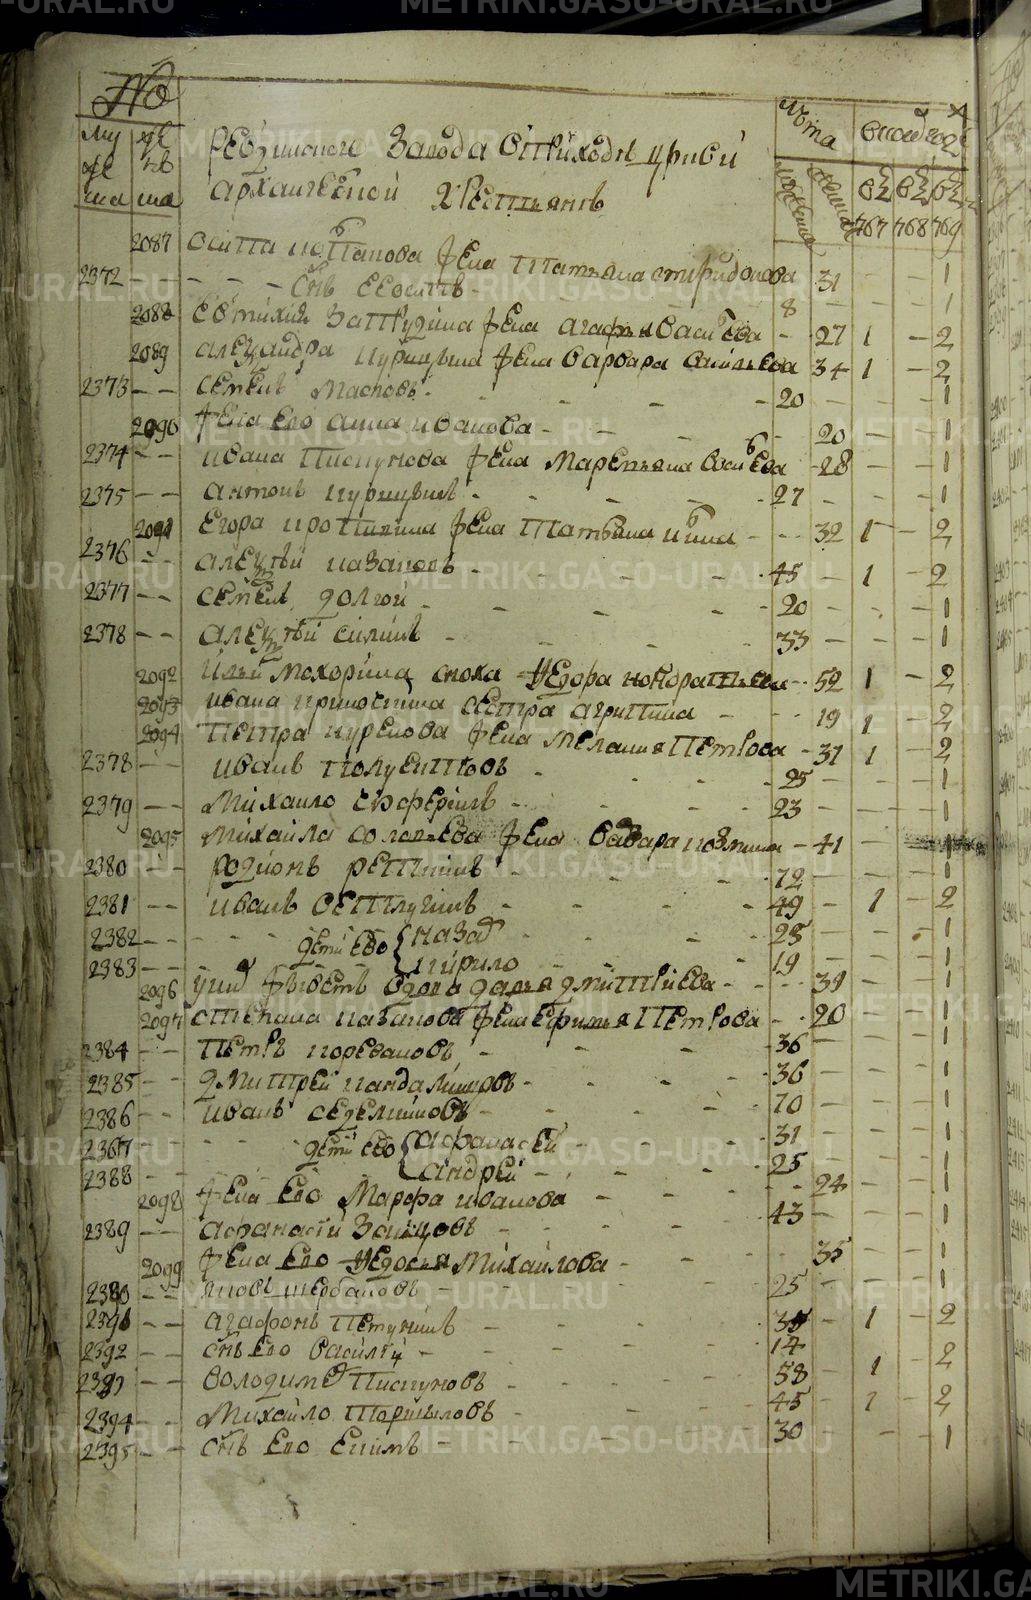 №
му же ска
же нс ка
Ревдинского завода оприходѣ церкви
Архангелской Крестьянъ
лѣта
мужеска
женска
въ коихъ годѣхъ
въ 767
въ 768
въ 769
2087 Осипа Потапова жена Татьяна Спиридонова 31 - - 1
2372 - - - Снъ Ево Осипъ - 8 - - 1
2088 Евтихия Затпудина жена Агафья Васильева - 27 1 - 2
2089 Алеѯандра Курицына жена Варвара Васильева 34 1 - 2
2373 - - Семенъ Масловъ - 20 - - - 1
2090 жена Ево Анна Иванова - 20 - - 1
2374 - - Ивана Пискунова жена Маремьяна Васильева - 28 - - 1
2375 - - Антонъ Курицынъ - 27 - - - 1
2091 Егора Кротикина жена Татьяна Ильина - 32 1 - 2
2376 - - Алеѯѣй Казаковъ - 45 - 1 - 2
2377 - - Семенъ Долгой - 20 - - - 1
2378 - - Алеѯѣй Силинъ - 33 - - - 1
2092 Ильи Мохорина сноха Ѳедора Кондратьева - 52 1 - 2
2093 Ивана Кривошина сестра Агрипина - 19 1 - 2
2094 Петра Куренова жена Меланья Петрова - 31 1 - 2
2378 - - Иванъ Полуектовъ - 25 - - - 1
2379 - - Михайло Ексферинъ - 23 - - - 1
2095 Михайла Соловьева жена Варвара Козмина - 41 - - 1
2380 - - Родионъ Репкинъ - 72 - - - 1
2381 - - Иванъ Ветлугинъ - 49 - 1 - 2
2382 - - дети Ево { Назаръ - 25 - - - 1
2383 - - Кирило - 19 - - - 1
2096 вдова Дарья Дмитриева - 39 - - 1
2097 Степана Казакова жена Ефимья Петрова - 20 - - 1
2384 - - Петръ Коревановъ - 36 - - - 1
2385 - - Дмитрей Кандалинцовъ - 36 - - - 1
2386 - - Иванъ Седелниковъ - 70 - - - 1
2387 - - дети Ево { Афанасей - 31 - - - 1
2388 - - Андрей - 25 - - - 1
2098 жена Ево Марфа Иванова - 24 - - 1
2389 - - Афанасий Зайцовъ - 43 - - - 1
2099 жена Ево Ѳедосья Михайлова - 35 - - 1
2380 - - Яковъ Щербаковъ - 25 - - - 1
2391 - - Агафонъ Петунинъ - 35 - 1 - 2
2392 - - Снъ Ево Василей - 14 - - - 2
2393 - - Володимеръ Пискуновъ - 58 - 1 - 2
2394 - - Михайло Торшиловъ - 45 - 1 - 2
2395 - - Снъ Ево Екимъ - 30 - - - 1
METRIKI.GASO-URAL.RU